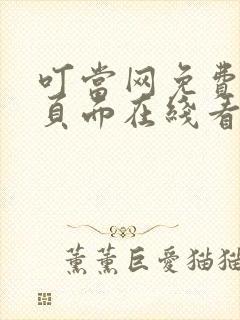 叮當网免費
頁而在綫看
薰薰巨愛猫猫